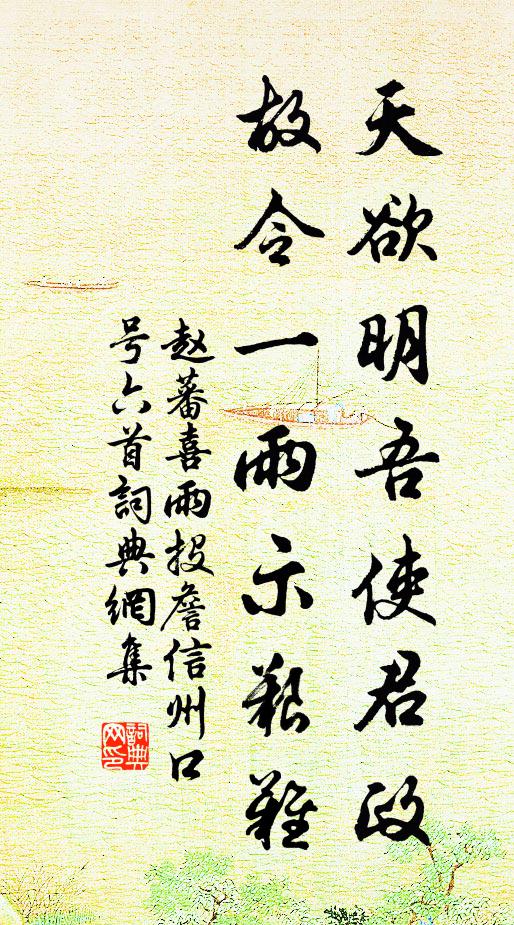 天欲明吾使君政
故令一雨示艱難
赵蕃喜雨投詹信州口
号六首詞典網集
詞典
网印